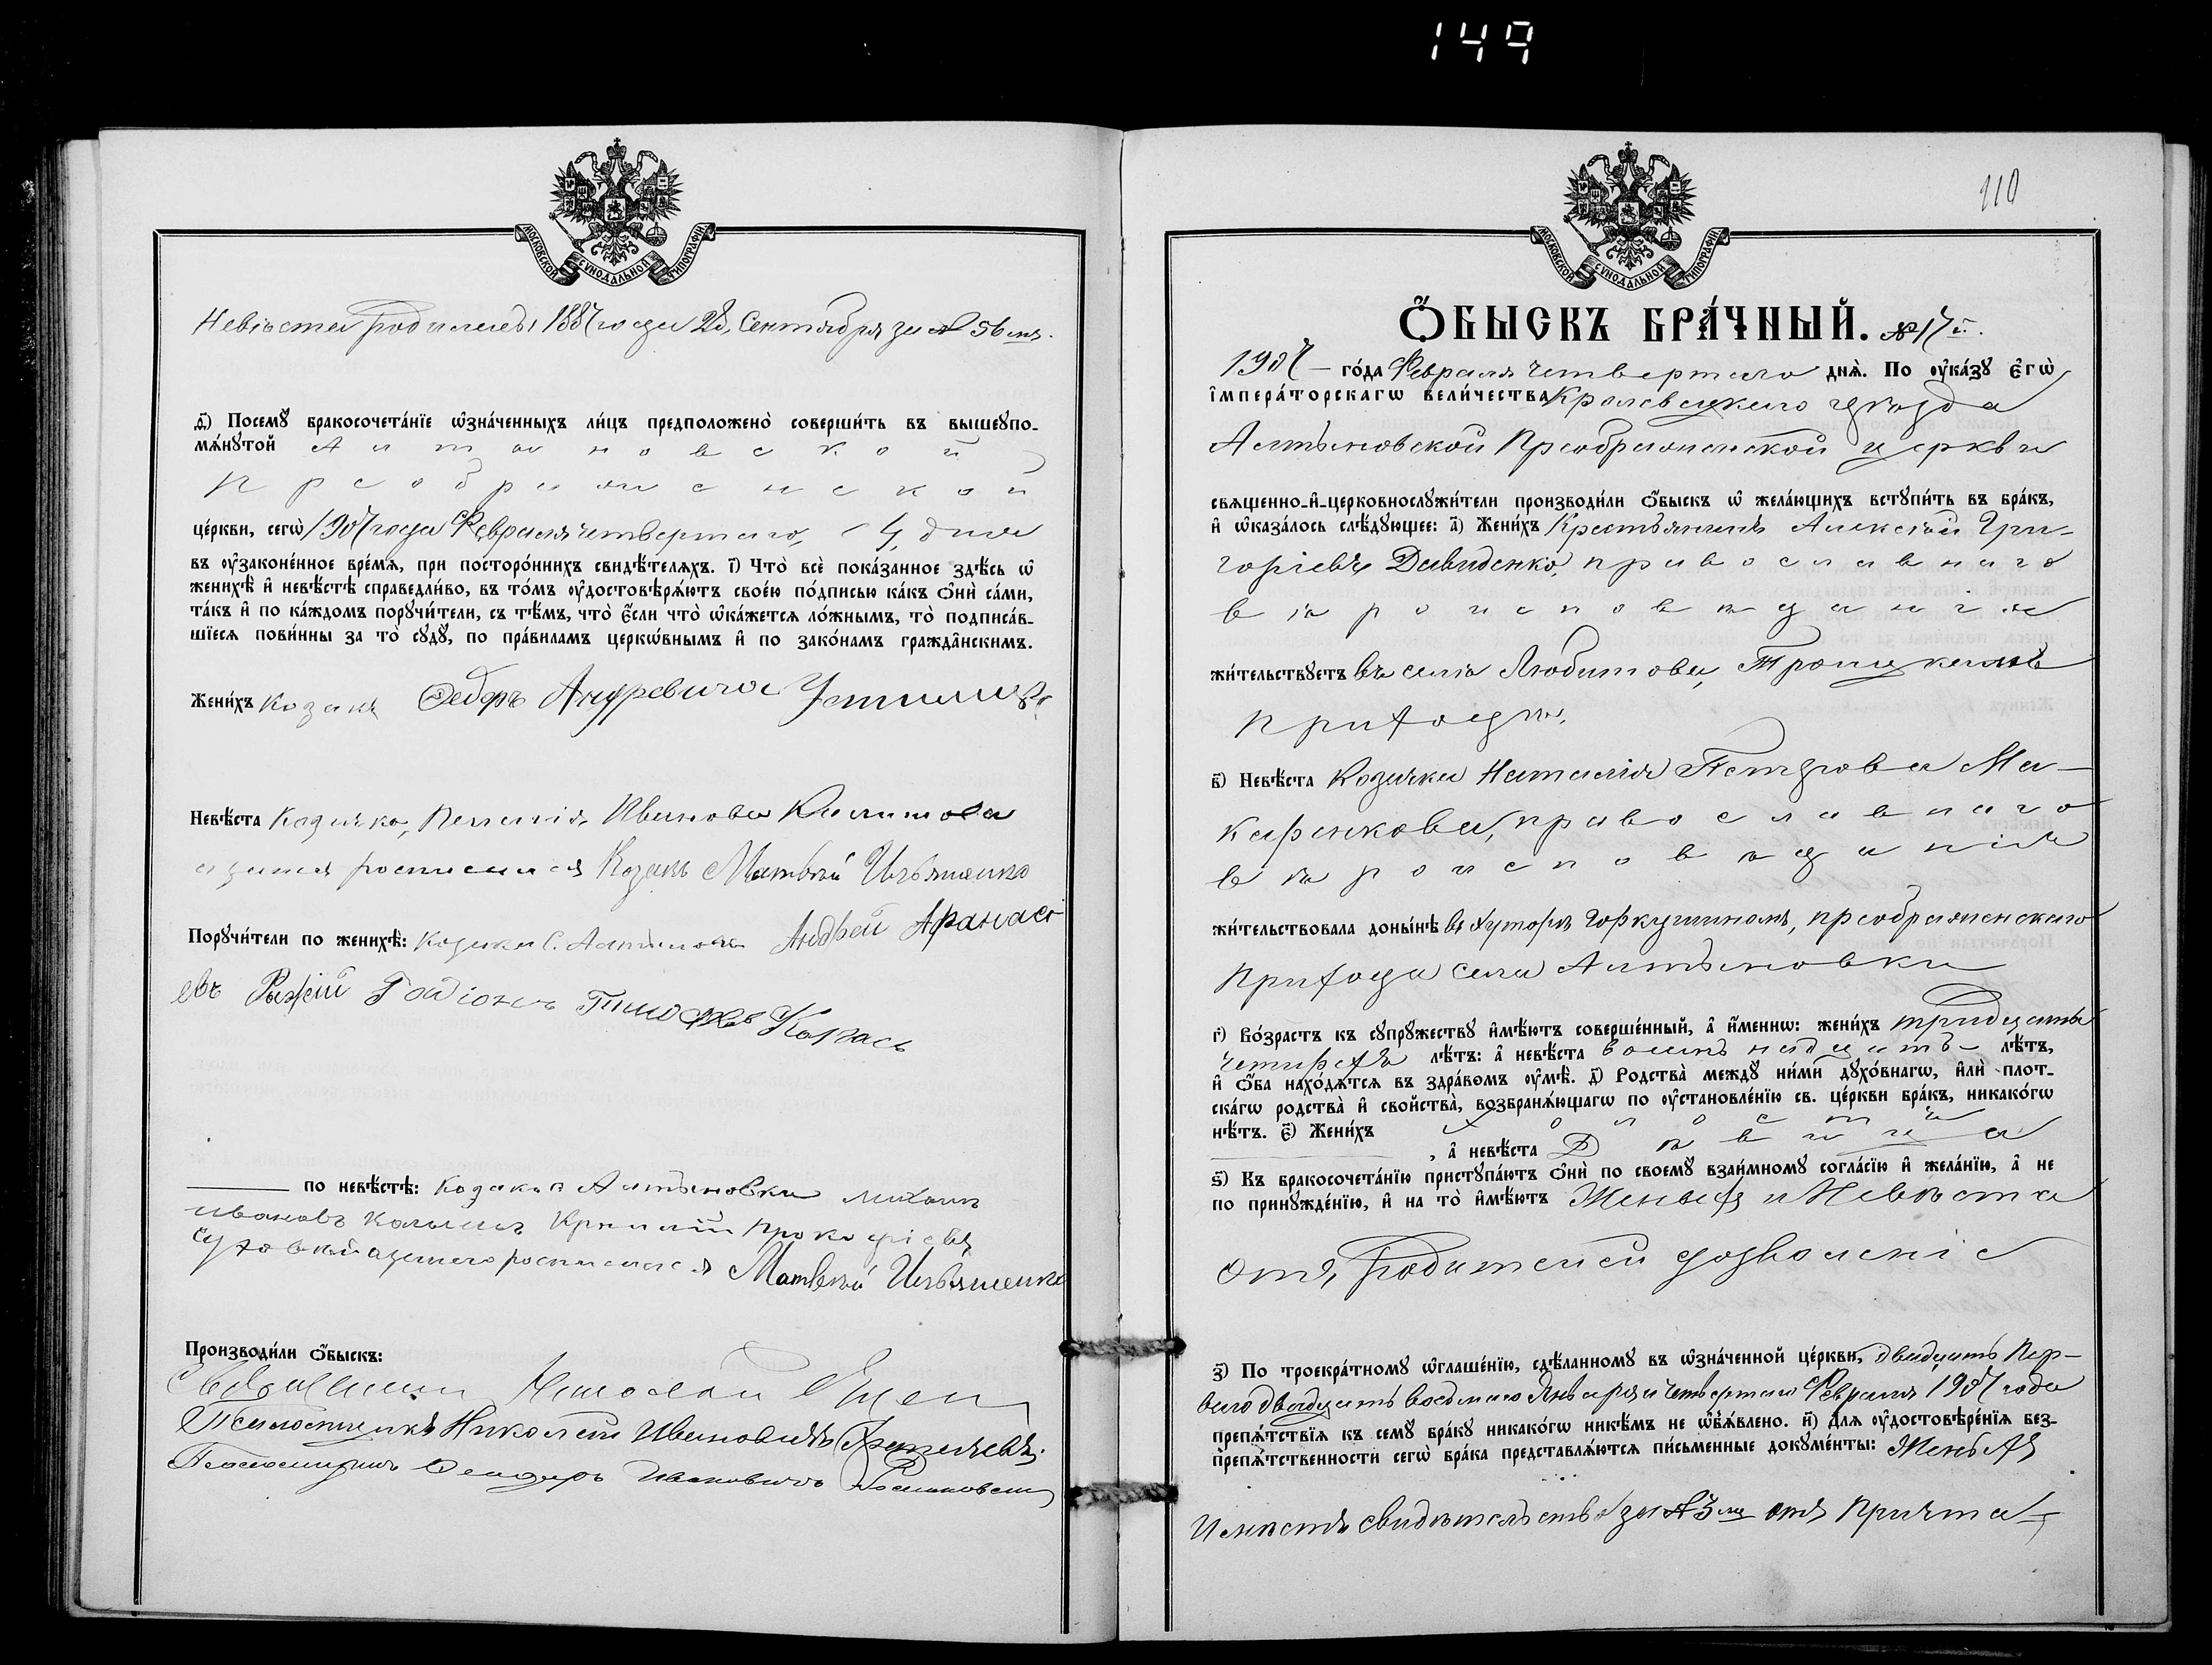 149
МОСКОВСКОЙ СѴНОДАЛЬНОЙ ТИПОГРАФІИ
Невѣста родилась 1887 года 28, Сентября за № 56 мъ.
д҃) Посемꙋ̀ бракосочета́нїе ѡ҆зна́ченныхъ ли́цъ предположено̀ соверши́ть въ вышеꙋпо-
мѧ́нꙋтой Алтыновской
Преображенской
це́ркви, сегѡ̀ 1907 года Февраля четвертаго, 4, дня
въ ᲂу҆зако́ненное вре́мѧ, при посторо́ннихъ свидѣ́телѧхъ. і҃) Что̀ всѐ пока́занное здѣ́сь ѡ҆
женихѣ̀ и҆ невѣ́стѣ справедли́во, въ то́мъ ᲂу҆достовѣрѧ́ютъ свое́ю по́дписью ка́къ ѻ҆нѝ са́ми,
та́къ и҆ по ка́ждомъ порꙋчи́тели, съ тѣ́мъ, что̀ є҆́сли что̀ ѡ҆ка́жетсѧ ло́жнымъ, то̀ подписа́в-
шїесѧ пови́нны за то̀ сꙋдꙋ̀, по пра́виламъ церкѡ́внымъ и҆ по зако́намъ гражда̂нскимъ.
Жени́хъ Козакъ Федоръ Андревичъ
Невѣ́ста Козачка, Иванова
росписался Козакъ Матвѣй Ильяшенко
Порꙋчи́тели по женихѣ̀: Козаки С. Алтыновки Андрей Афанасі
евъ Рыжій Родіонъ Карась
по невѣ́стѣ: Козаки Алтыновки Михаилъ
Ивановъ Прокофіевъ
росписался Матвѣй Ильяшенко
Производи́ли ѻ҆́быскъ:
Священникъ Николай
Псаломщикъ Николай Ивановичъ
Псаломщикъ Ивановичъ
110
МОСКОВСКОЙ СѴНОДАЛЬНОЙ ТИПОГРАФІИ
Ѻ҆́БЫСКЪ БРА́ЧНЫЙ. № 17 й.
1907 — го́да Февраля четвертаго днѧ̀. По ᲂу҆ка́зꙋ є҆гѡ̀
і҆мпера́торскагѡ вели́чества Кролевецкаго уѣзда
Алтыновской Преображенской церкви
свѧщенно-и҆-церковнослꙋжи́тели производи́ли ѻ҆́быскъ ѡ҆ жела́ющихъ встꙋпи́ть въ бра́къ,
и҆ ѡ҆каза́лось слѣ́дꙋющее: а҃) Жени́хъ Крестьянинъ Алексѣй Гри-
горіевъ Давиденко, православнаго
вѣроисповѣданія
жи́тельствꙋетъ въ селѣ Любитовѣ, Троицкаго
прихода,
в҃) Невѣ́ста Козачка Наталія Петрова Ма-
каренкова, православнаго
вѣроисповѣданія
жи́тельствовала доны́нѣ въ хуторѣ Горкушиномъ, преображенскаго
прихода села Алтыновки
г҃) Во́зрастъ къ сꙋпрꙋ́жествꙋ и҆мѣ́ютъ соверше́нный, а҆ и҆́меннѡ: жени́хъ тридцать
четырехъ лѣ́тъ: а҆ невѣ́ста восемнадцать лѣ́тъ,
и҆ ѻ҆́ба нахо́дѧтсѧ въ здра́вомъ ᲂу҆мѣ̀. д҃) Родства̀ междꙋ̀ ни́ми дꙋхо́внагѡ, и҆лѝ плот-
ска́гѡ родства̀ и҆ сво́йства, возбранѧ́ющагѡ по ᲂу҆становле́нїю св. це́ркви бра́къ, никако́гѡ
нѣ́тъ. є҃) Жени́хъ холостъ
, а҆ невѣ́ста Дѣвица
ѕ҃) Къ бракосочета́нїю пристꙋпа́ютъ ѻ҆нѝ по своемꙋ̀ взаи́мномꙋ согла́сїю и҆ жела́нїю, а҆ не
по принꙋжде́нїю, и҆ на то̀ и҆мѣ́ютъ Женихъ и Невѣста
отъ, Родителей дозволеніе
з҃) По троекра́тномꙋ ѡ҆глаше́нїю, сдѣ́ланномꙋ въ ѡ҆зна́ченной це́ркви, двадцать Пер-
ваго двадцать восьмаго Января и четвертаго Февраля 1907 года
препѧ́тствїѧ къ семꙋ̀ бра́кꙋ никако́гѡ никѣ́мъ не ѡ҆б̾ѧ́влено. и҃) Длѧ ᲂу҆достовѣре́нїѧ без-
препѧ́тственности сегѡ̀ бра́ка представлѧ́ютсѧ пи́сьменные докꙋме́нты: Женихъ
Имѣетъ свидѣтельство за № 3 мъ отъ Причта